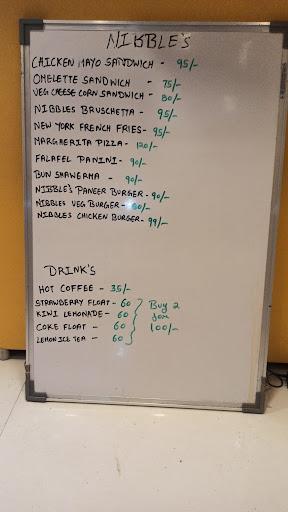 NIBBLE'S
CHICKEN MAYO SANDWICH - 95/-
OMELETTE SANDWICH - 75/-
VEG CHEESE CORN SANDWICH - 80/-
NIBBLES BRUSCHETTA - 95/-
NEW YORK FRENCH FRIES - 95/-
MARGHERITA PIZZA - 120/-
FALAFEL PANINI - 90/-
BUN SHAWERMA - 90/-
NIBBLE'S PANEER BURGER - 90/-
NIBBLES VEG BURGER - 80/-
NIBBLES CHICKEN BURGER - 99/-
DRINK'S
HOT COFFEE - 35/-
STRAWBERRY FLOAT - 60
KIWI LEMONADE - 60
COKE FLOAT - 60
LEMON ICE TEA - 60
Buy 2
for
100/-